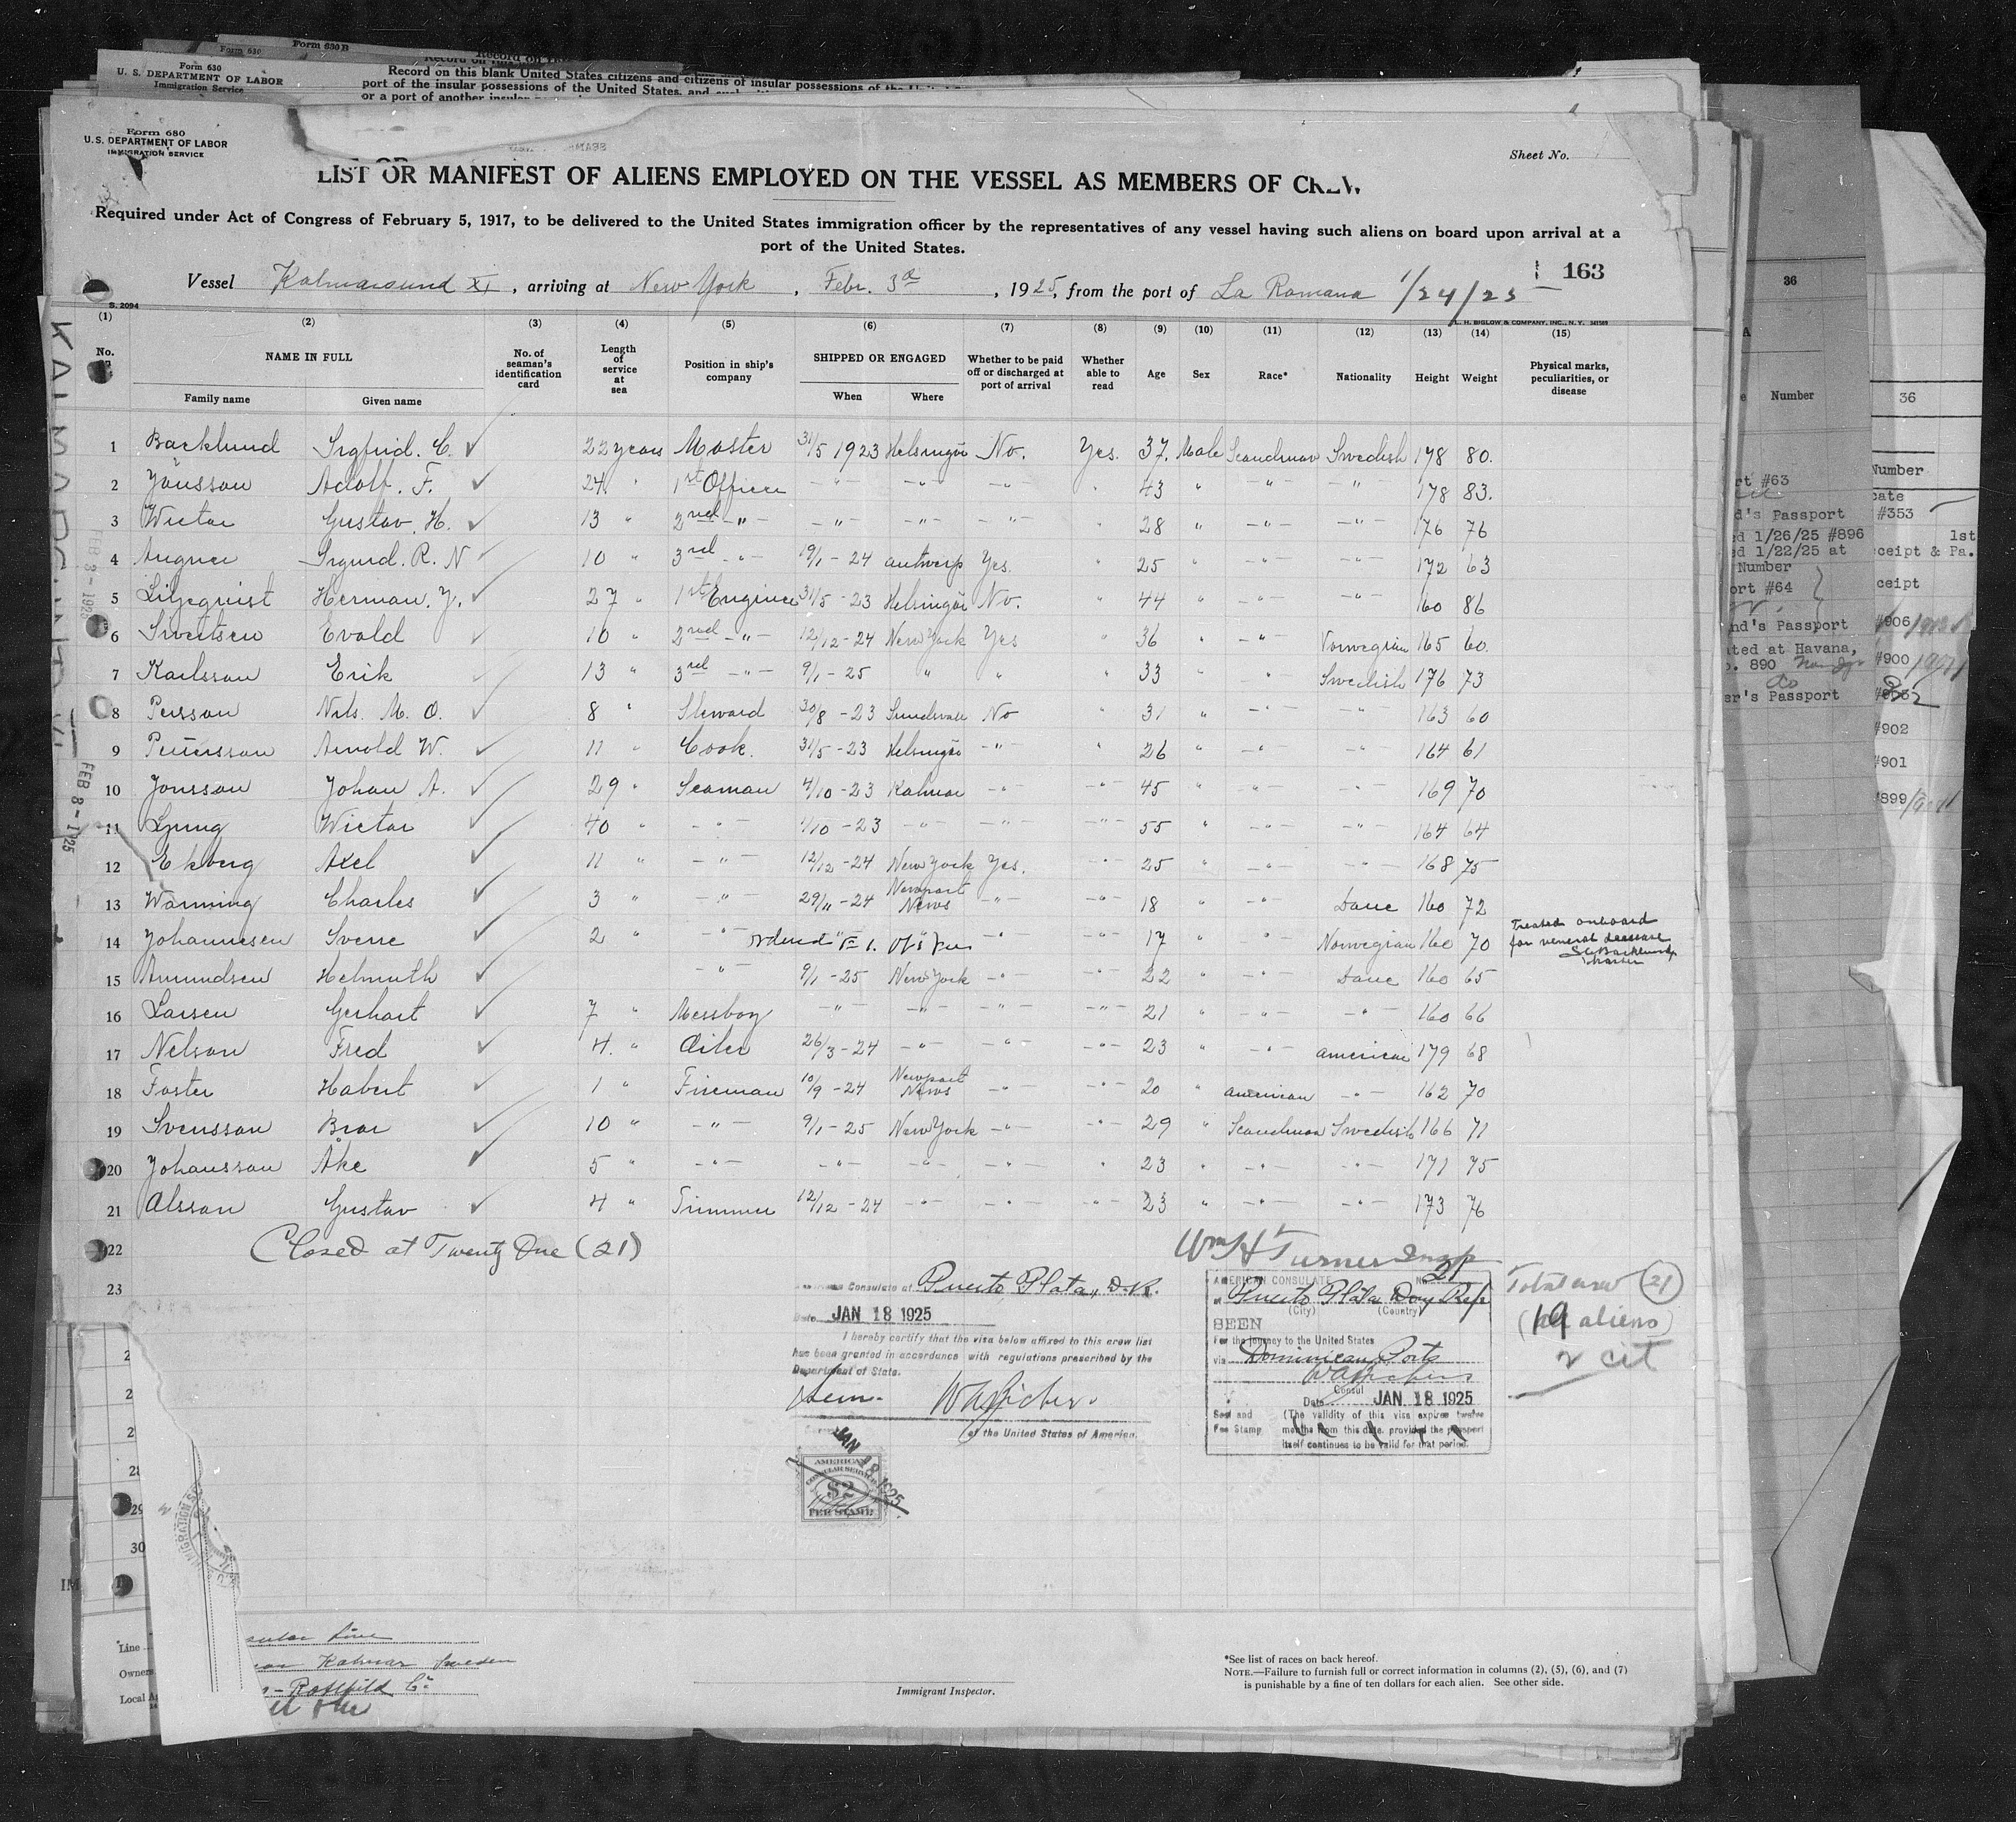 Form 630
Form 630 B
Form 630
U. S. DEPARTMENT OF LABOR
Immigration Service
Record on this blank United States citizens and citizens of insular possessions of
port of the insular possessions of the United States, and
or a port of another insular
Form 680
U. S. DEPARTMENT OF LABOR
IMMIGRATION SERVICE
Sheet No.
LIST OR MANIFEST OF ALIENS EMPLOYED ON THE VESSEL AS MEMBERS OF CREW
Required under Act of Congress of February 5, 1917, to be delivered to the United States immigration officer by the representatives of any vessel having such aliens on board upon arrival at a
port of the United States.
163
Vessel Kalmarsund XI, arriving at New York, Febr. 3d, 1925, from the port of La Romana 1/24/25
S. 2094
L. H. BIGLOW & COMPANY, INC., N. Y.
(1) (2) (3) (4) (5) (6) (7) (8) (9) (10) (11) (12) (13) (14) (15)
No. NAME IN FULL Family name Given name No. of seaman's identification card Length of service at sea Position in ship's company SHIPPED OR ENGAGED When Where Whether to be paid off or discharged at port of arrival Whether able to read Age Sex Race* Nationality Height Weight Physical marks, peculiarities, or disease
1 Backlund Sigfrid. C. 22 years Master 31/5 1923 Helsingör No. Yes. 37. Male Scandinav Swedish 178 80.
2 Jönsson Adolf. F. 24 " 1st Officer -"- -"- -"- " 43 " -"- -"- 178 83.
3 Wictor Gustav. H. 13 " 2nd -"- -"- -"- -"- 28 " -"- -"- 176 76
4 Sigurd. R. N 10 " 3rd -"- 19/1 - 24 Antwerp Yes. " 25 " -"- -"- 172 63
5 Liljequist Herman. J. 27 " 1st Engineer 31/5 - 23 Helsingör No. " 44 " -"- -"- 160 86
6 Sivertsen Evald 10 " 2nd -"- 12/12 - 24 New York Yes " 36 " -"- Norwegian 165 60.
7 Karlsson Erik 13 " 3rd -"- 9/1 - 25 " " " 33 " -"- Swedish 176 73
8 Persson Nils. M. O. 8 " Steward 30/8 - 23 Sundsvall No " 31 " -"- -"- 163 60
9 Pettersson Arnold W. 11 " Cook. 31/5 - 23 Helsingör -"- " 26 " -"- -"- 164 61
10 Jonsson Johan A. 29 " Seaman 4/10 - 23 Kalmar -"- -"- 45 " -"- -"- 169 70
11 Ljung Wictor 40 " -"- 1/10 - 23 -"- -"- -"- 55 " -"- -"- 164 64
12 Ekberg Axel 11 " -"- 12/12 - 24 New York Yes. -"- 25 " -"- -"- 168 75
13 Wänning Charles 3 " -"- 29/11 - 24 Newport News -"- -"- 18 " -"- Dane 160 72
14 Johannesen Sverre 2 " -"- ordered -"- -"- 17 " -"- Norwegian 160 70 Treated onboard for veneral decease S C Backlund, Master
15 Amundsen Helmuth -"- 9/1 - 25 New York -"- -"- 22 " -"- Dane 160 65
16 Larsen Gerhart 7 " Messboy -"- -"- -"- -"- 21 " -"- -"- 160 66
17 Nelson Fred 4. " Oiler 26/3 - 24 -"- -"- -"- 23 " -"- American 179 68
18 Foster Hobert 1 " Fireman 10/9 - 24 Newport News -"- -"- 20 " American -"- 162 70
19 Svensson Bror 10 " -"- 9/1 - 25 New York -"- -"- 29 " Scandinav Swedish 166 71
20 Johansson Åke 5 " -"- -"- -"- -"- " 23 " -"- -"- 171 75
21 Olsson Gustav 4 " Trimmer 12/12 - 24 -"- -"- -"- 23 " -"- -"- 173 76
22 Closed at Twenty One (21)
Wm H Turner Insp
23
KALMARSUND XI
FEB 3 - 1925
FEB 8 - 1925
American Consulate at Puerto Plata, D.R.
Date JAN 18 1925
I hereby certify that the visa below affixed to this crew list
has been granted in accordance with regulations prescribed by the
Department of State.
of the United States of America.
JAN 18 1925
AMERICAN
CONSULAR SERVICE
$2
FEE STAMP
AMERICAN CONSULATE No. 21
at Puerto Plata Dom Rep
(City) (Country)
SEEN
For the journey to the United States
via Dominican Ports
Consul
Date JAN 18 1925
Seal and Fee Stamp
(The validity of this visa expires twelve
months from this date, provided the passport
itself continues to be valid for that period.
Total crew (21)
(19 aliens)
2 cit
29
30
Line
Owners Kalmar Sweden
Local
Immigrant Inspector.
*See list of races on back hereof.
NOTE.—Failure to furnish full or correct information in columns (2), (5), (6), and (7)
is punishable by a fine of ten dollars for each alien. See other side.
36
Number
rt #63
d's Passport
ed 1/26/25 #896
ed 1/22/25 at
Number
ort #64
nd's Passport
ated at Havana,
o. 890
er's Passport
36
Number
cate
#353
1st
ceipt & Pa.
ceipt
#906
#900
#902
#901
#899